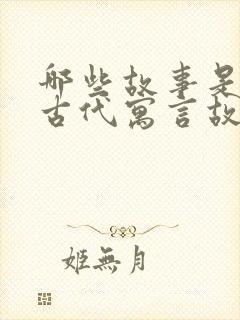 哪些故事是
古代寓言故
姬無月